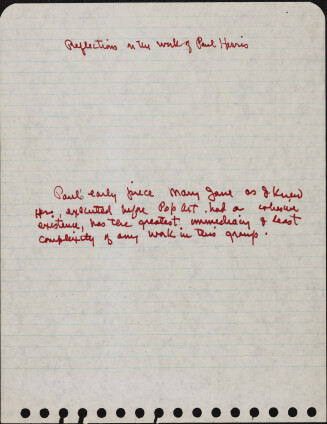 Reflections on the work of Paul Harris
Paul's early piece Mary Jane as I knew
her, executed before Pop Art had a cohesive
existence, has the greatest immediacy & least
complexity of any work in this group.